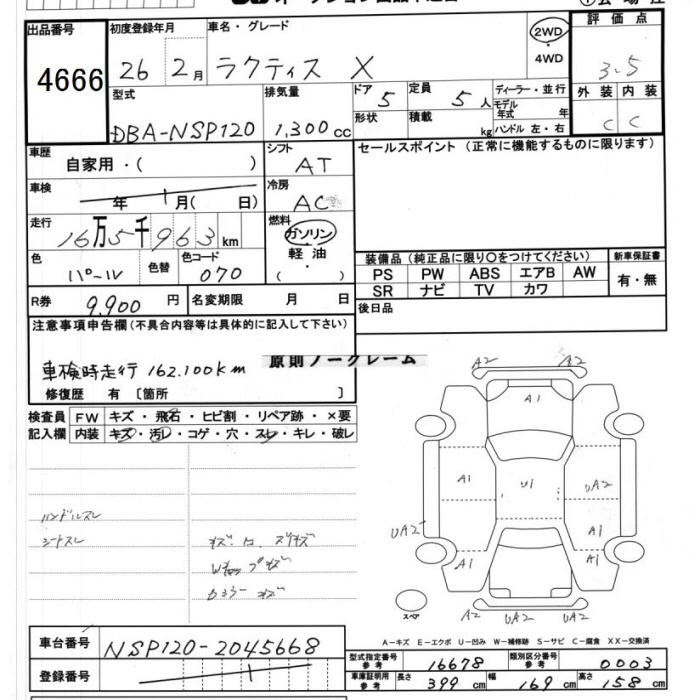 出品番号
4666
初度登録年月
26 2月
車名・グレード
ラクティス X
2WD
・
4WD
評価点
3.5
外装 内装
C C
型式
DBA-NSP120
排気量
1,300 cc
ドア 5
形状
定員 5人
積載 kg
ディーラー・並行
モデル年式 年
ハンドル 左・右
車歴
自家用・( )
シフト
AT
セールスポイント (正常に機能するものに限ります)
車検
年 月( 日)
冷房
AC
走行
16万5千963km
燃料
ガソリン
軽油
( ・ )
装備品 (純正品に限り〇をつけてください)
新車保証書
PS PW ABS エアB AW
有・無
SR ナビ TV カワ
色
パール
色替
色コード
070
R券
9,900 円
名変期限 月 日
後日品
注意事項申告欄 (不具合内容等は具体的に記入して下さい)
原則ノークレーム
車検時走行 162.100km
修復歴 有 〔箇所 〕
検査員
記入欄
FW キズ・飛石・ヒビ割・リペア跡・×要
内装 キズ・汚レ・コゲ・穴・スレ・キレ・破レ
ハンドルスレ
シートスレ
A2 A2
A1
A1 U1 UA2
UA2 A1
A1 A1
A2 UA2 UA2
スペア
A-キズ E-エクボ U-凹み W-補修跡 S-サビ C-腐食 XX-交換済
車台番号
NSP120-2045668
登録番号
型式指定番号
参考
16678
類別区分番号
参考
0003
車庫証明用
参考
長さ 399 cm 幅 169 cm 高さ 158 cm